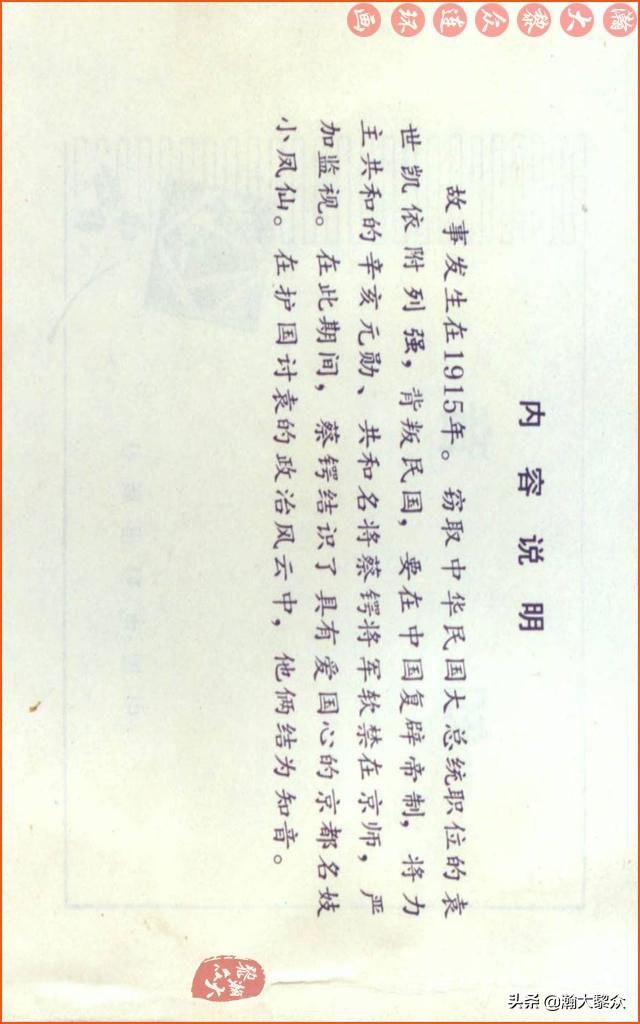 瀚大黎众连环画
内容说明
故事发生在1915年。窃取中华民国大总统职位的袁
世凯依附列强，背叛民国，要在中国复辟帝制，将力
主共和的辛亥元勋、共和名将蔡锷将军软禁在京师，严
加监视。在此期间，蔡锷结识了具有爱国心的京都名妓
小凤仙。在护国讨袁的政治风云中，他俩结为知音。
瀚大
黎众
头条 @瀚大黎众